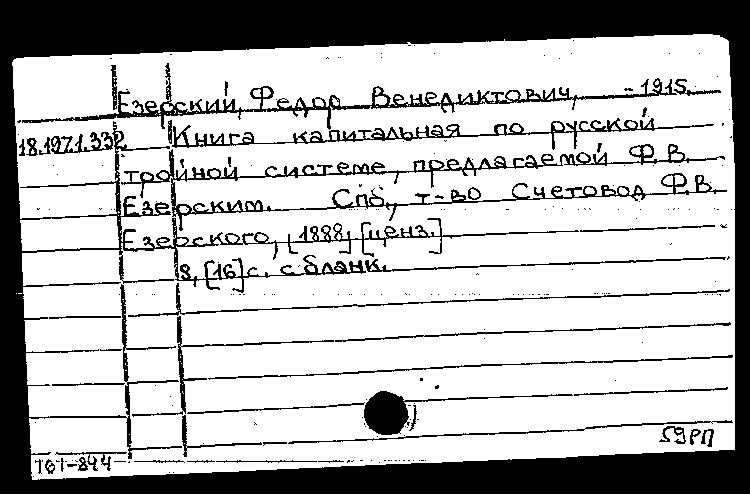 Езерский, Федор Венедиктович, -1915.
18.197.1.332 Книга капитальная по русской
тройной системе, предлагаемой Ф.В.
Езерским. Спб., т-во Счетовод Ф.В.
Езерского, [1888] [ценз.]
8, [16] с. с бланк.
59РП
161-844